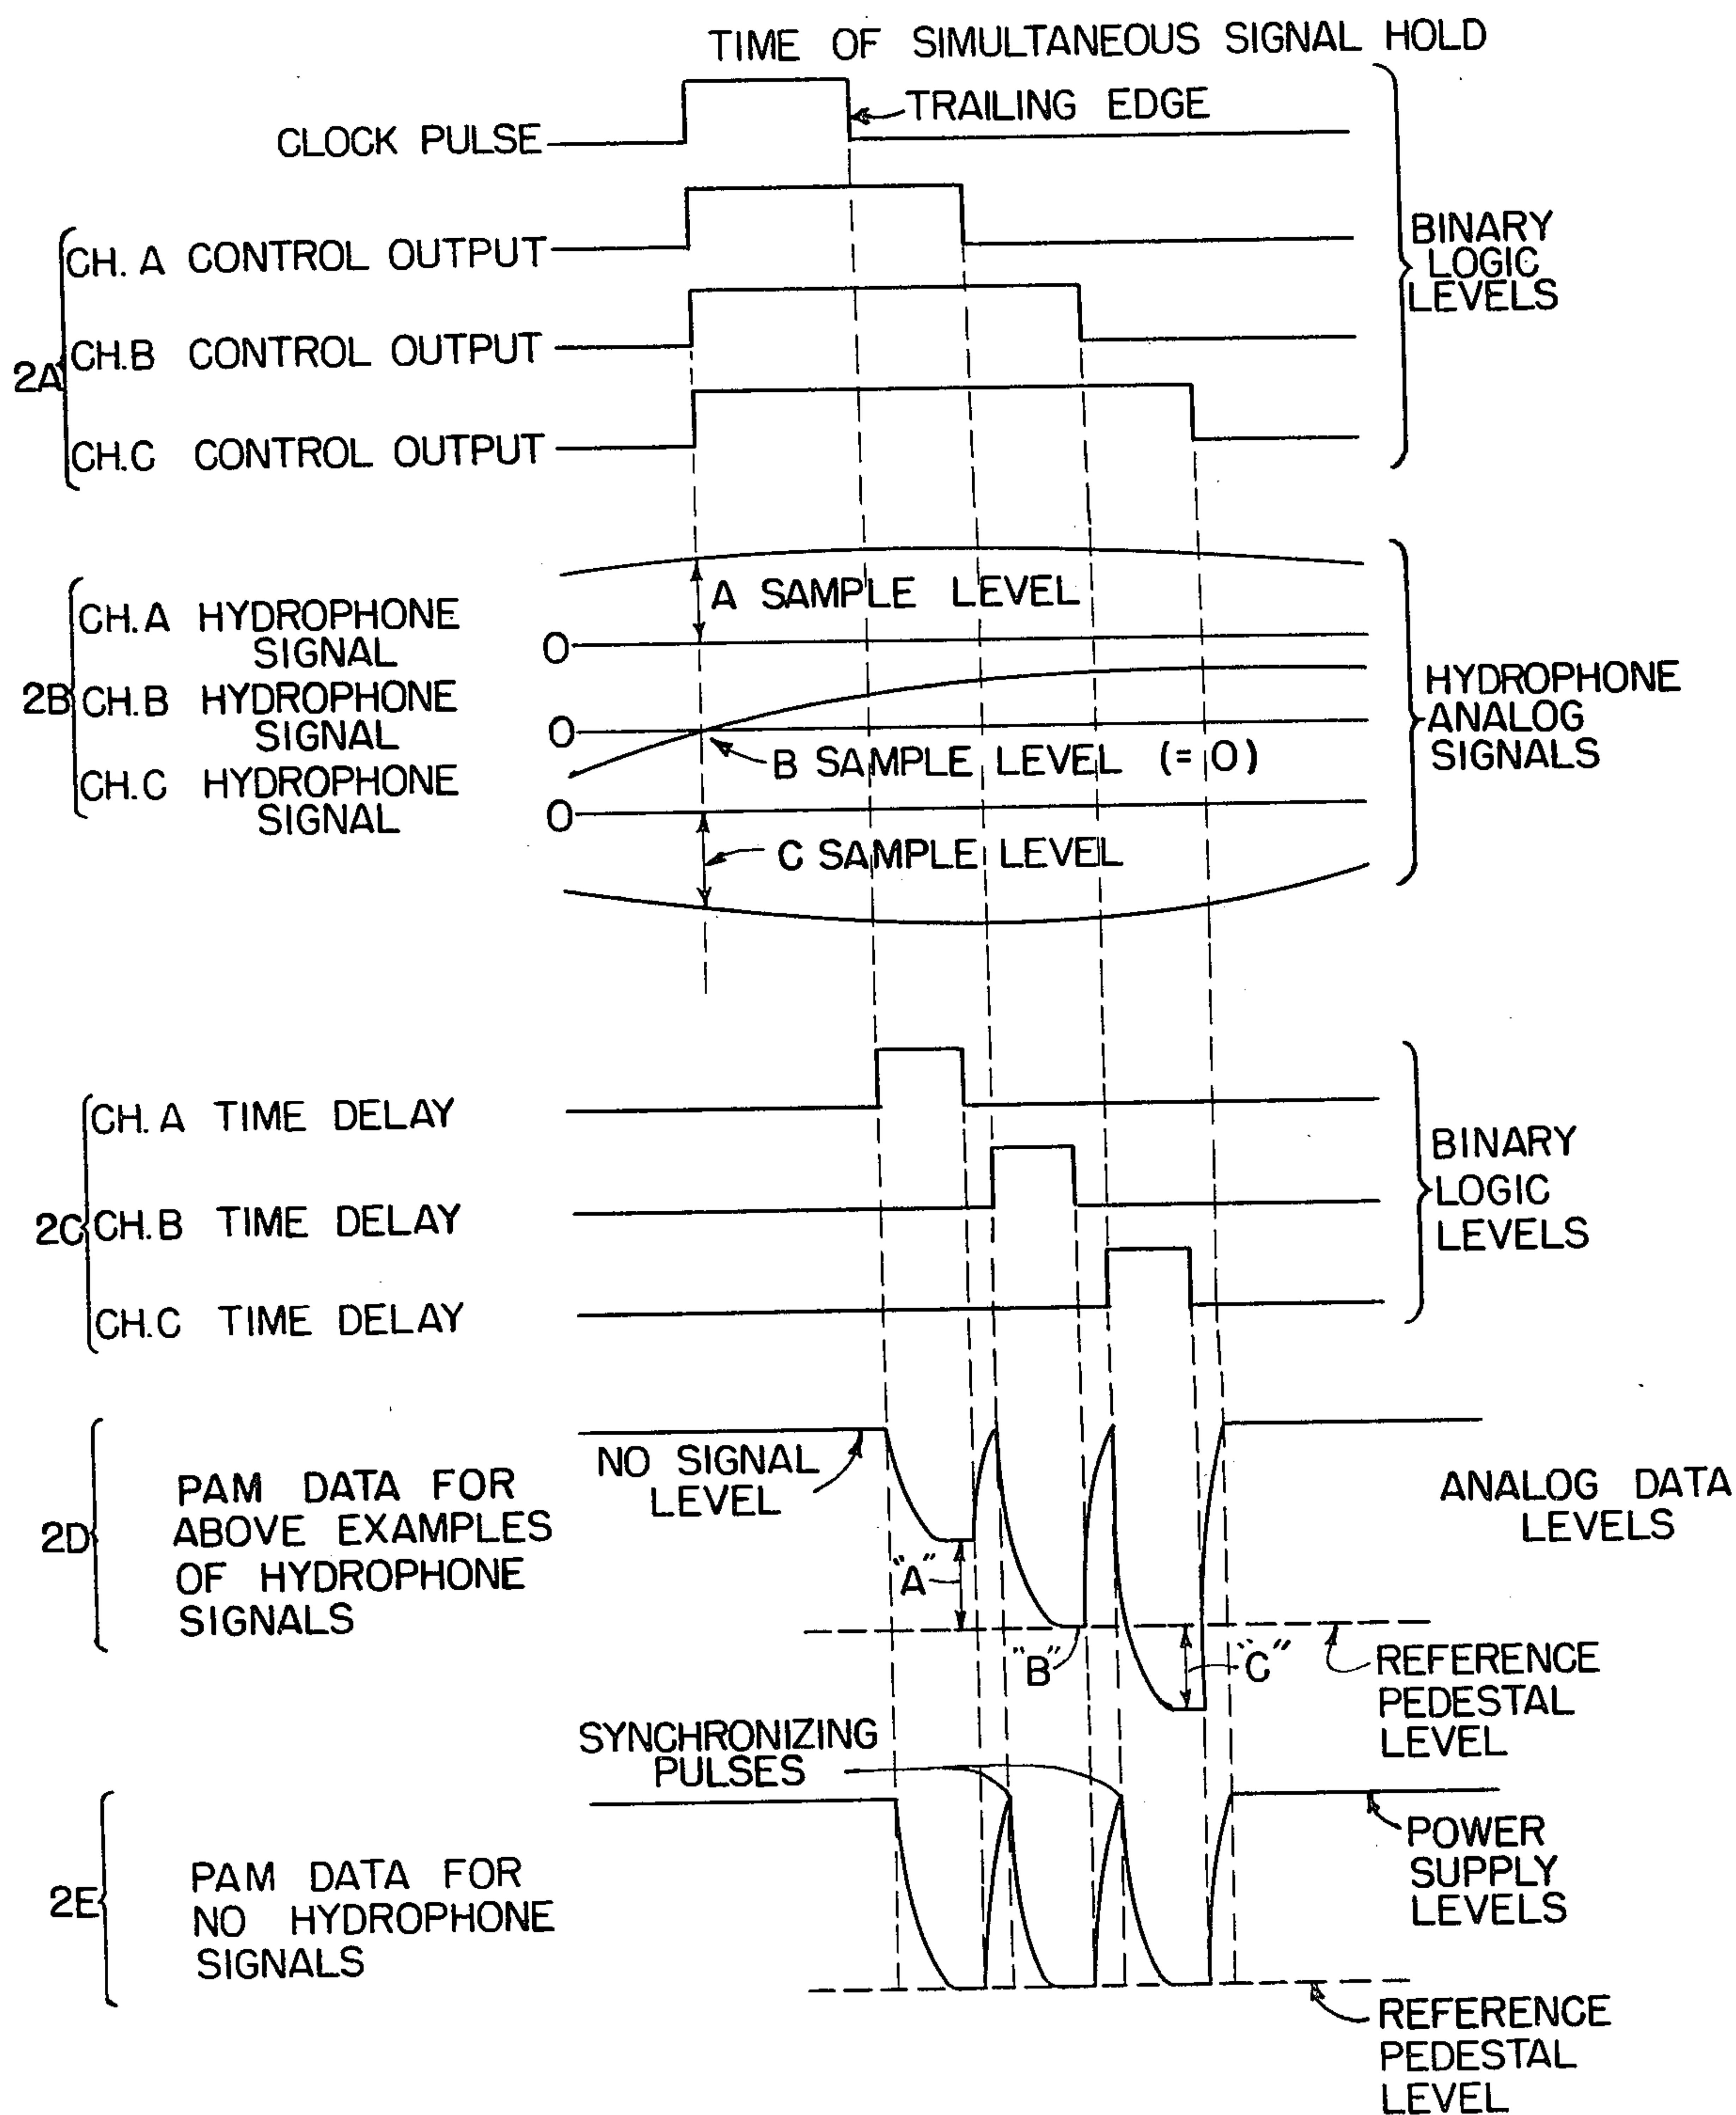 TIME OF SIMULTANEOUS SIGNAL HOLD
TRAILING EDGE
CLOCK PULSE
CH. A CONTROL OUTPUT
2A
CH.B CONTROL OUTPUT
CH.C CONTROL OUTPUT
BINARY
LOGIC
LEVELS
A SAMPLE LEVEL
CH.A HYDROPHONE
SIGNAL
O
2B
CH.B HYDROPHONE
SIGNAL
O
B SAMPLE LEVEL (=O)
CH.C HYDROPHONE
SIGNAL
O
C SAMPLE LEVEL
HYDROPHONE
ANALOG
SIGNALS
CH. A TIME DELAY
2C
CH.B TIME DELAY
CH.C TIME DELAY
BINARY
LOGIC
LEVELS
NO SIGNAL
LEVEL
2D
PAM DATA FOR
ABOVE EXAMPLES
OF HYDROPHONE
SIGNALS
"A"
"B"
"C"
ANALOG DATA
LEVELS
REFERENCE
PEDESTAL
LEVEL
SYNCHRONIZING
PULSES
2E
PAM DATA FOR
NO HYDROPHONE
SIGNALS
POWER
SUPPLY
LEVELS
REFERENCE
PEDESTAL
LEVEL